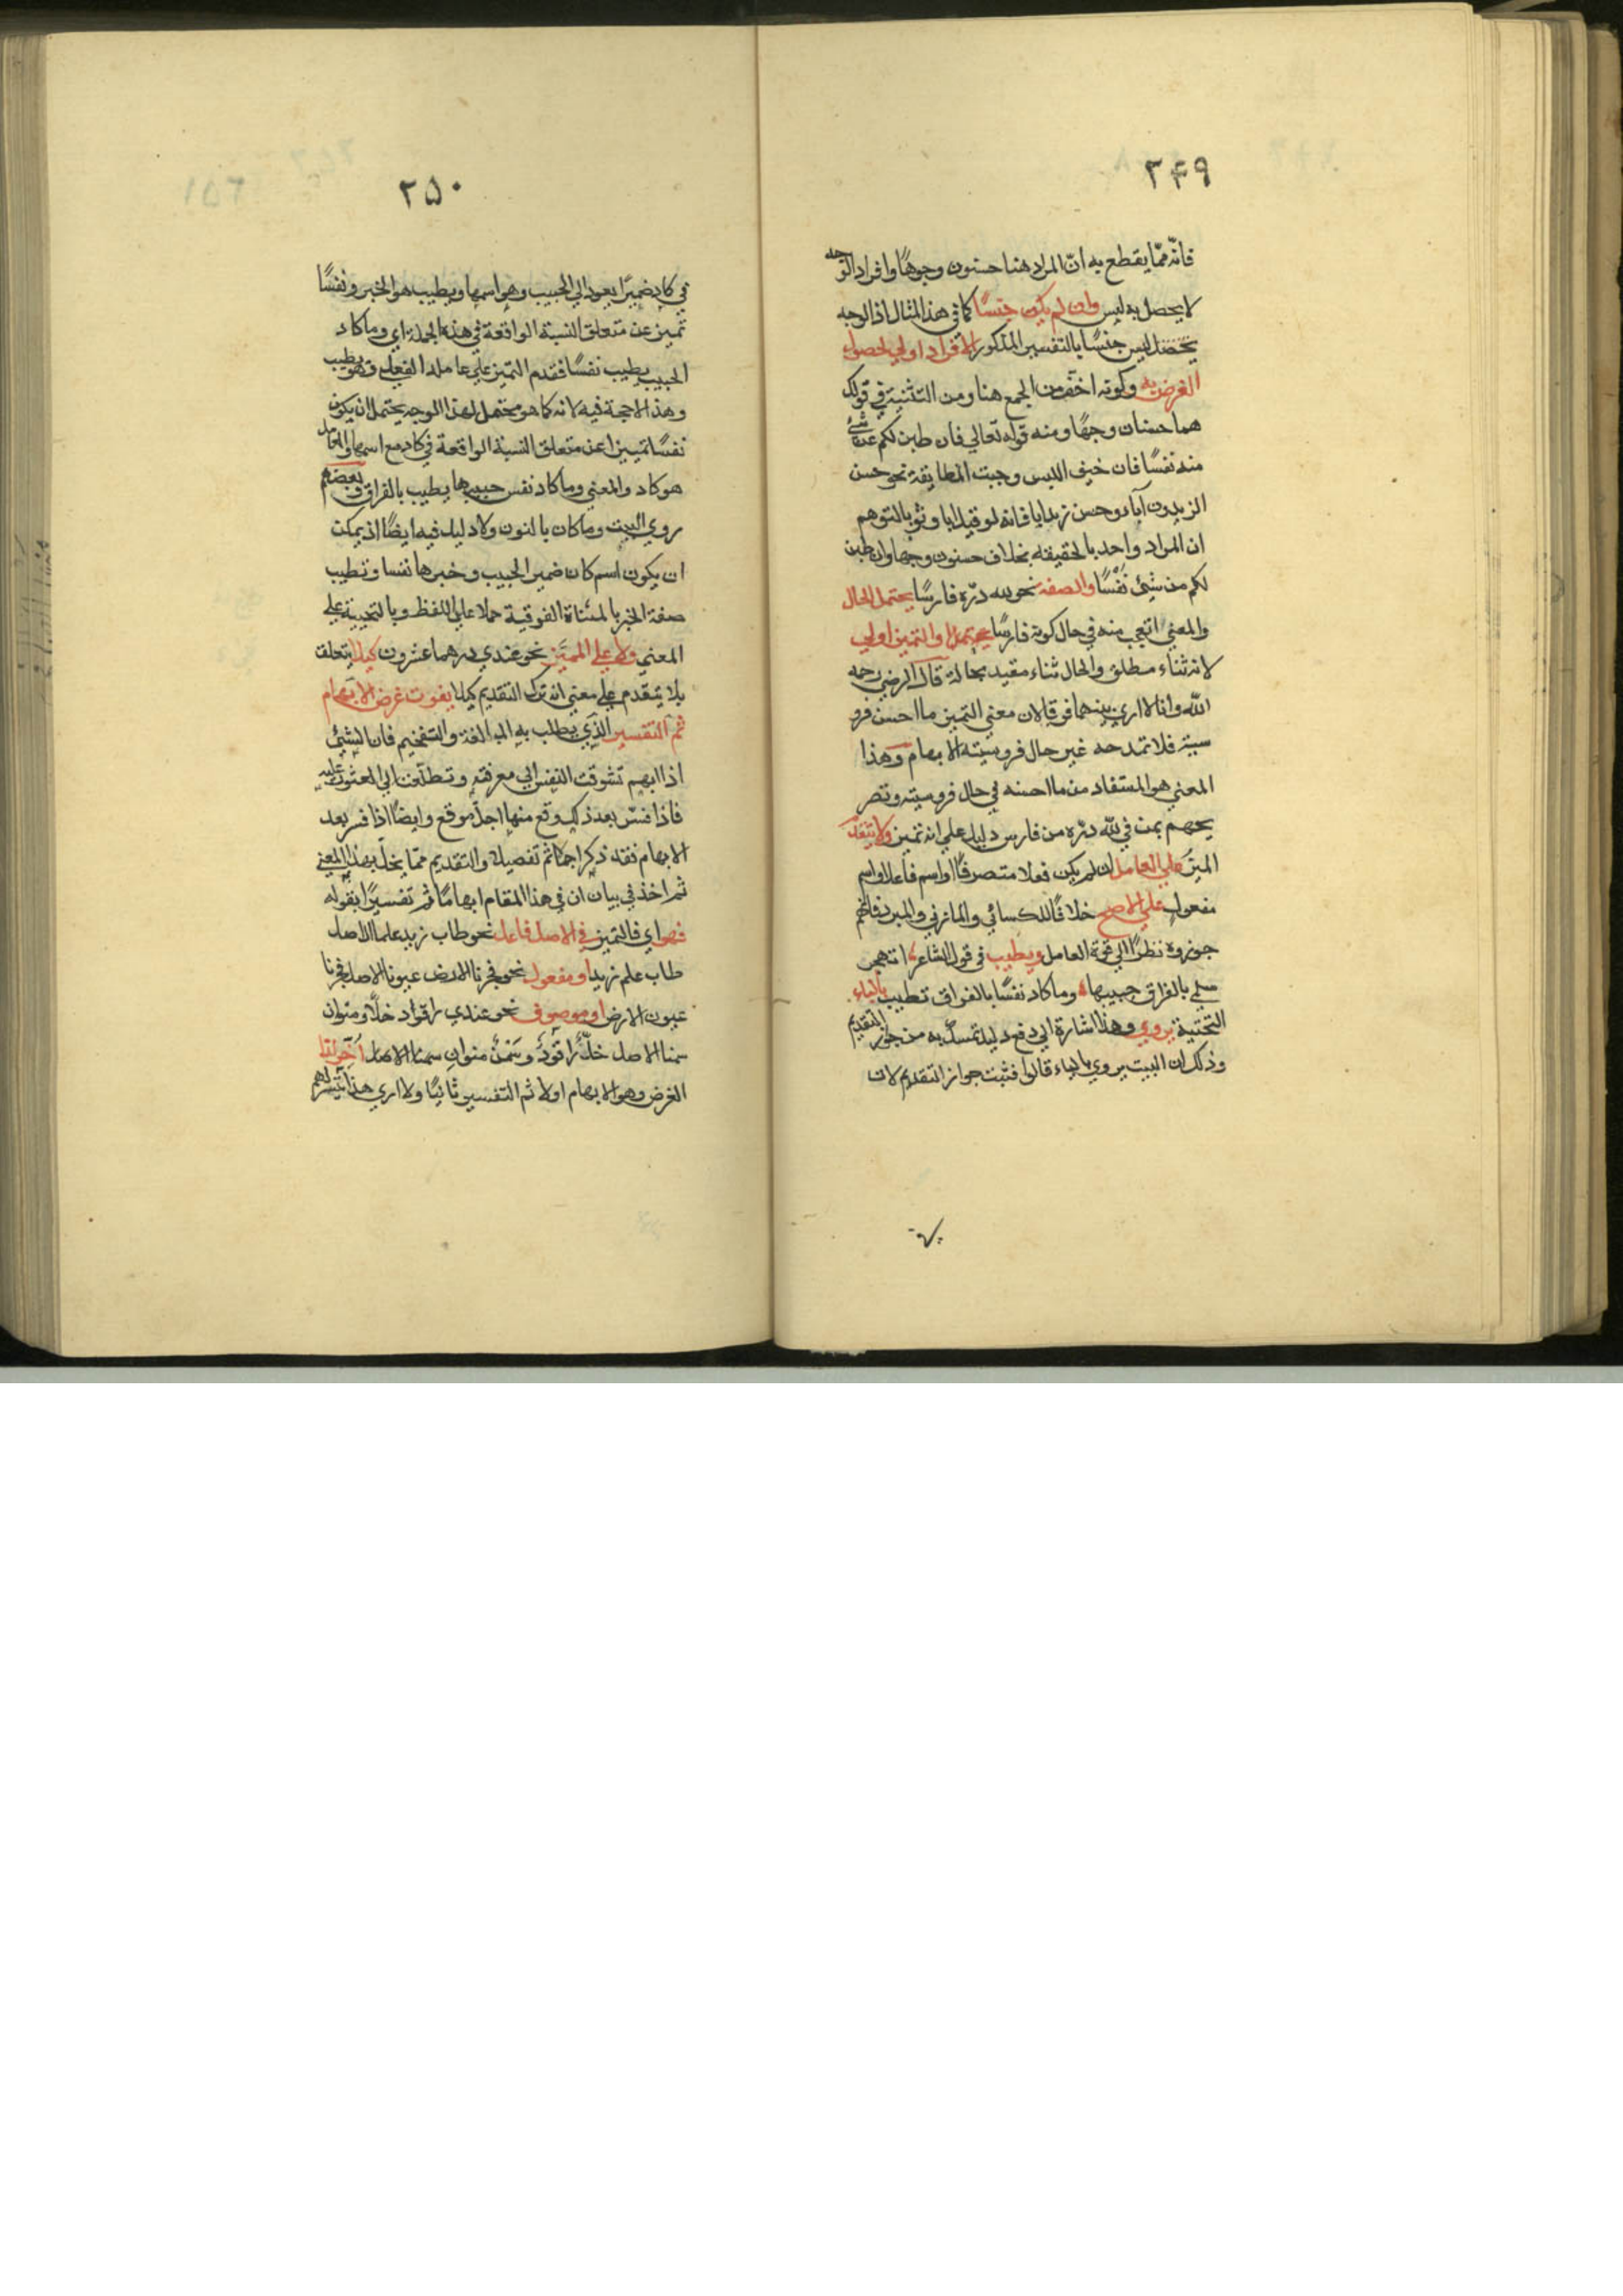 ٣۴٩
فانّه ممّا يقطع به انّ المراد هنا حسنون وجوهًا وافراد الوجه
لا يحصل به لبس وان لم يكن جنسًا كما في هذا المثال اذ الوجه
ليس جنسًا بالتفسير المذكور الافراد اولي لحصول
الغرض به وكونه اخف من الجمع هنا ومن التثنية في قولك
هما حسنان وجهًا ومنه قوله تعالي فان طبن لكم عن شئ
منه نفسًا فان خيف اللبس وجبت المطابقة نحو حسن
الزيدون آباء وحسن زيد ابا فانه لو قيل ابا وثوبا لتوهم
ان المراد واحد بالحقيقة بخلاف حسنون وجها وان طبن
لكم من شئ نَفْسًا والصفة نحو لله درّه فارسًا يحتمل الحال
والمعني اتعجب منه في حال كونه فارسًا والتميز اولي
لانه ثناء مطلق والحال ثناء مقيد بحالة قال الرضي رحمه
الله وانا لا اري بينهما فرقا لان معني التميز ما احسن فرو
سيته فلا تمدحه غير حال فروسيته الا بهام وهذا
المعني هو المستفاد من ما احسنه في حال فروسيته وتصر
يحهم بمن في لله درّه من فارس دليل علي انه تميز ولا يتقدم
المميزُ علي العامل ان لم يكن فعلا متصرفًا او اسم فاعل او اسم
مفعول علي الاصح خلافًا للكسائي والمازني والمبرد فانهم
جوزوه نظرًا الي قوة العامل ويطيب في قول الشاعر اتهجر
سلمي بالفراق حبيبها وما كاد نفسًا بالفراق تطيب بالياء
التحتية يروي وهذا اشارة الي دفع دليل تمسك به من جوز التقديم
وذلك ان البيت يروي بالياء قالوا فثبت جواز التقديم لان
٢۵٠
في كاد ضميرًا يعود الي الحبيب وهو اسمها ويطيب هو الخبر ونفسًا
تميز عن متعلق النسبة الواقعة في هذه الجملة اي وما كاد
الحبيب يطيب نفسًا فقدم التميز علي عامله الفعلي وهو يطيب
وهذا لا حجة فيه لانه كما هو محتمل لهذا الوجه يحتمل ان يكون
نفسًا تمييزا عن متعلق النسبة الواقعة في كاد مع اسمها والعامل
هو كاد والمعني وما كاد نفس حبيبها يطيب بالفراق وبعضهم
روي البيت وما كان بالنون ولا دليل فيه ايضًا اذ يمكن
ان يكون اسم كان ضمير الحبيب وخبرها نفسا وتطيب
صفة الخبر بالمثناة الفوقية حملا علي اللفظ وبالتحتية علي
المعني ولا علي المميَّز نحو عندي درهما عشرون كيلا يتعلق
بلا يتقدم علي معني انه ترك التقديم كيلا يفوت غرض الابهام
ثم التفسير الذي يطلب به المبالغة والتفخيم فان الشئ
اذا ابهم تشوقت النفس الي معرفته وتطلعت الي العثور عليه
فاذا فسّر بعد ذلك وقع منها اجلّ موقع وايضًا اذا فسر بعد
الابهام فقد ذكر اجمالا ثم تفصيلا والتقديم ممّا يخلّ بهذا المعني
ثم اخذ في بيان ان في هذا المقام ابهامًا ثم تفسيرًا بقوله
فهو اي فالتميز في الاصل فاعل نحو طاب زيد علما الاصل
طاب علم زيد او مفعول نحو فجرنا الارض عيونا الاصل فجرنا
عيون الارض او موصوف نحو عندي راقود خلًّا ومنوان
سمنا الاصل خلٌّ راقودٌ وسَمْنٌ منوانِ سمنا الاصل
الغرض وهو الابهام اولا ثم التفسير ثانيًا ولا اري هذا يتيسّر لهم